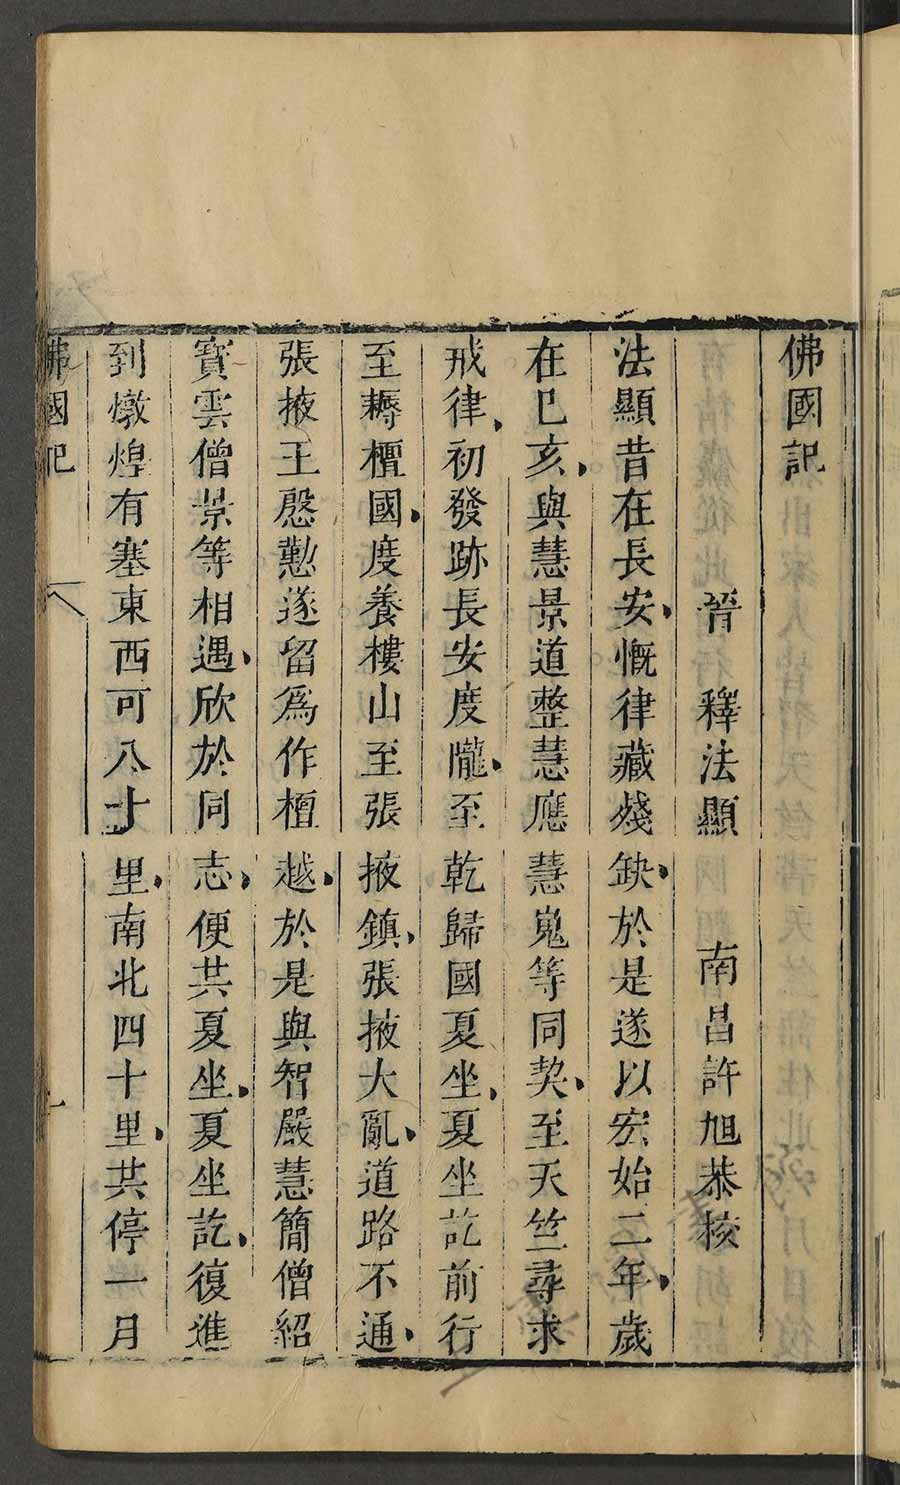 佛國記
晉 釋法顯 南昌許旭恭校
法顯昔在長安慨律藏殘缺於是遂以宏始二年歲
在巳亥與慧景道整慧應慧嵬等同契至天竺尋求
戒律初發跡長安度隴至乾歸國夏坐夏坐訖前行
至耨檀國度養樓山至張掖鎮張掖大亂道路不通
張掖王慇懃遂留爲作檀越於是與智嚴慧簡僧紹
寶雲僧景等相遇欣於同志便共夏坐夏坐訖復進
到燉煌有塞東西可八十里南北四十里共停一月
佛國記